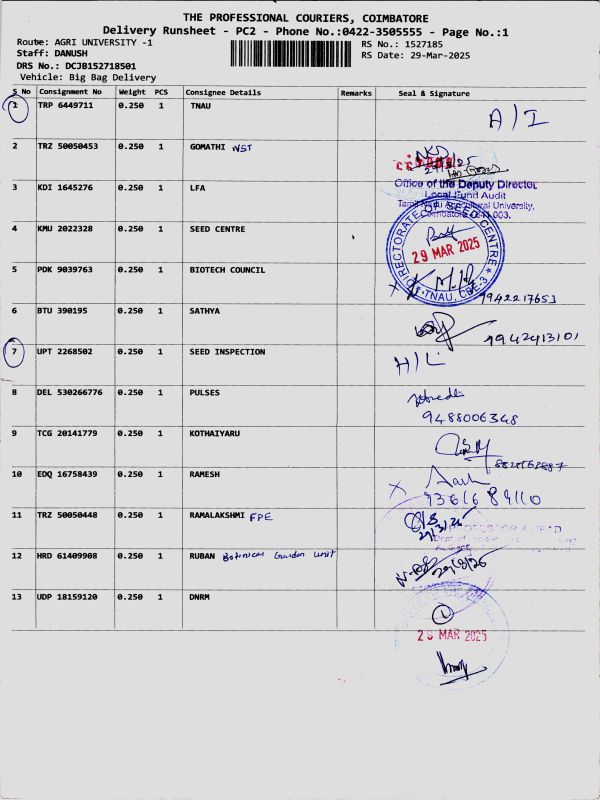 THE PROFESSIONAL COURIERS, COIMBATORE
Delivery Runsheet - PC2 - Phone No.:0422-3505555 - Page No.:1
Route: AGRI UNIVERSITY -1 RS No.: 1527185
Staff: DANUSH RS Date: 29-Mar-2025
DRS No.: DCJB152718501
Vehicle: Big Bag Delivery
S No Consignment No Weight PCS Consignee Details Remarks Seal & Signature
1 TRP 6449711 0.250 1 TNAU A/I
2 TRZ 50050453 0.250 1 GOMATHI NST
Office of the Deputy Director
Local Fund Audit
Tamil Nadu Agricultural University,
Coimbatore - 641 003.
3 KDI 1645276 0.250 1 LFA
4 KMU 2022328 0.250 1 SEED CENTRE
DIRECTORATE OF SEED CENTRE
29 MAR 2025
TNAU, CBE-3
5 PDK 9039763 0.250 1 BIOTECH COUNCIL
9942217653
6 BTU 390195 0.250 1 SATHYA 9942413101
7 UPT 2268502 0.250 1 SEED INSPECTION H/L
8 DEL 530266776 0.250 1 PULSES
9488006348
9 TCG 20141779 0.250 1 KOTHAIYARU
10 EDQ 16758439 0.250 1 RAMESH
11 TRZ 50050448 0.250 1 RAMALAKSHMI FPE
29/3/25
PROFESSOR & HEAD
12 HRD 61409908 0.250 1 RUBAN Botanical Garden Unit 29/3/25
13 UDP 18159120 0.250 1 DNRM
29 MAR 2025